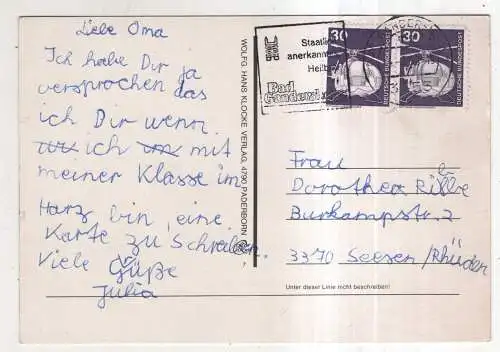 Liebe Oma
Ich habe Dir ja
versprochen das
ich Dir wenn
ich mit
meiner Klasse im
Harz bin eine
Karte zu Schreiben.
Viele Grüße
Julia
WOLFG. HANS KLOCKE VERLAG, 4790 PADERBORN
Staatl.
anerkann
Heilb
Bad
Ganders
30
DEUTSCHE BUNDESPOST
30
DEUTSCHE BUNDESPOST
Frau
Dorothea
Burkampstr. 2
3370 Seesen/Rhüden
Unter dieser Linie nicht beschreiben!